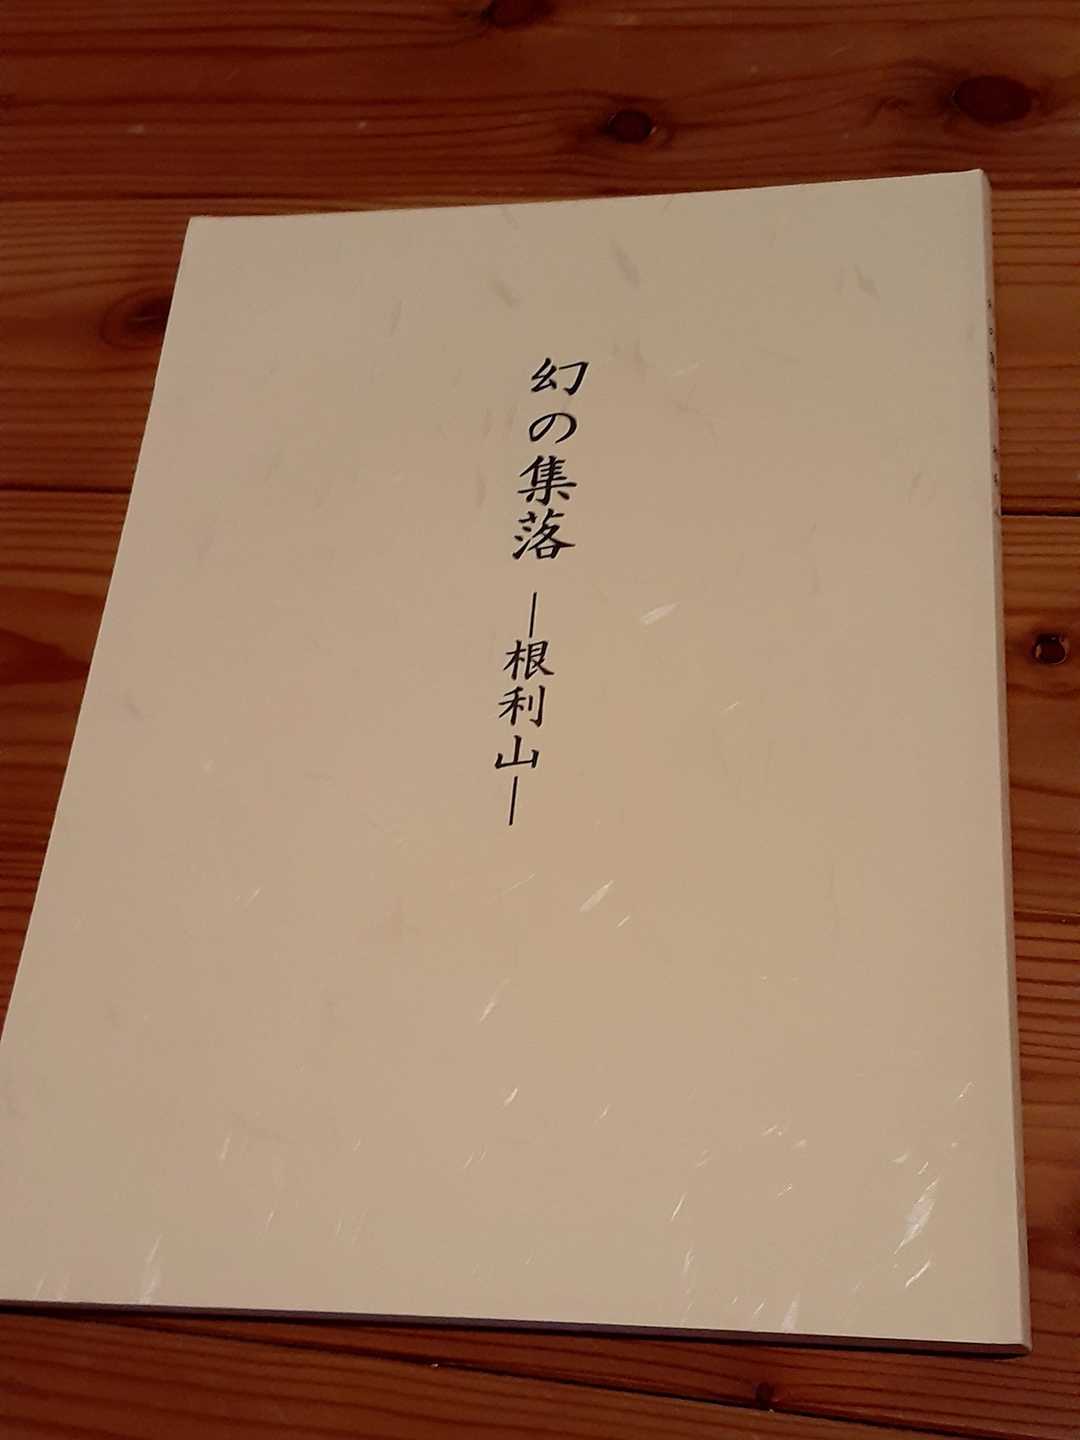 幻の集落 ―根利山―